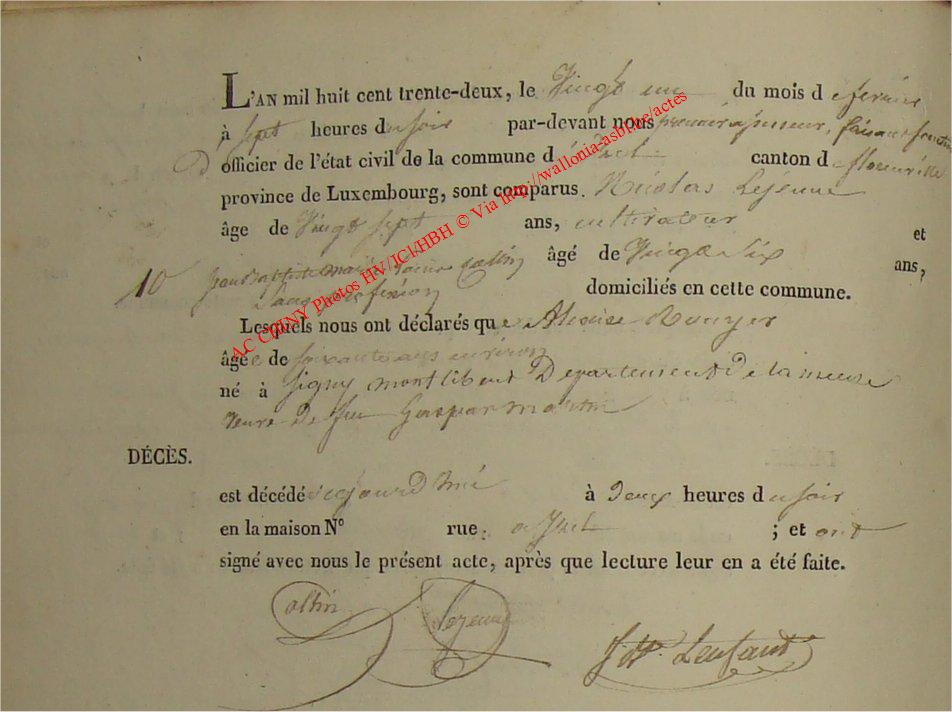 L'AN mil huit cent trente-deux, le Vingt un du mois de fevrier
à sept heures du soir par-devant nous premier assesseur, faisant fonction
d officier de l'état civil de la commune d canton de florenville
province de Luxembourg, sont comparus. Nicolas Lejeune
âge de Vingt sept ans, cultivateur et
10 Jean Baptiste marie Collin âgé de Vingt Six ans,
Sans profession domiciliés en cette commune.
Lesquels nous ont déclarés que Rouyer
âgée de soixante ans environ
né à Jigny montlibert Departement De la meuse
veuve De feu Gaspar martin
DÉCÈS.
est décédé aujourd'hui à Deux heures du soir
en la maison N° rue: a ; et ont
signé avec nous le présent acte, après que lecture leur en a été faite.
Collin Lejeune
AC CHINY Photos HV/JCl/HBH © Via http://wallonia-asbl.be/actes